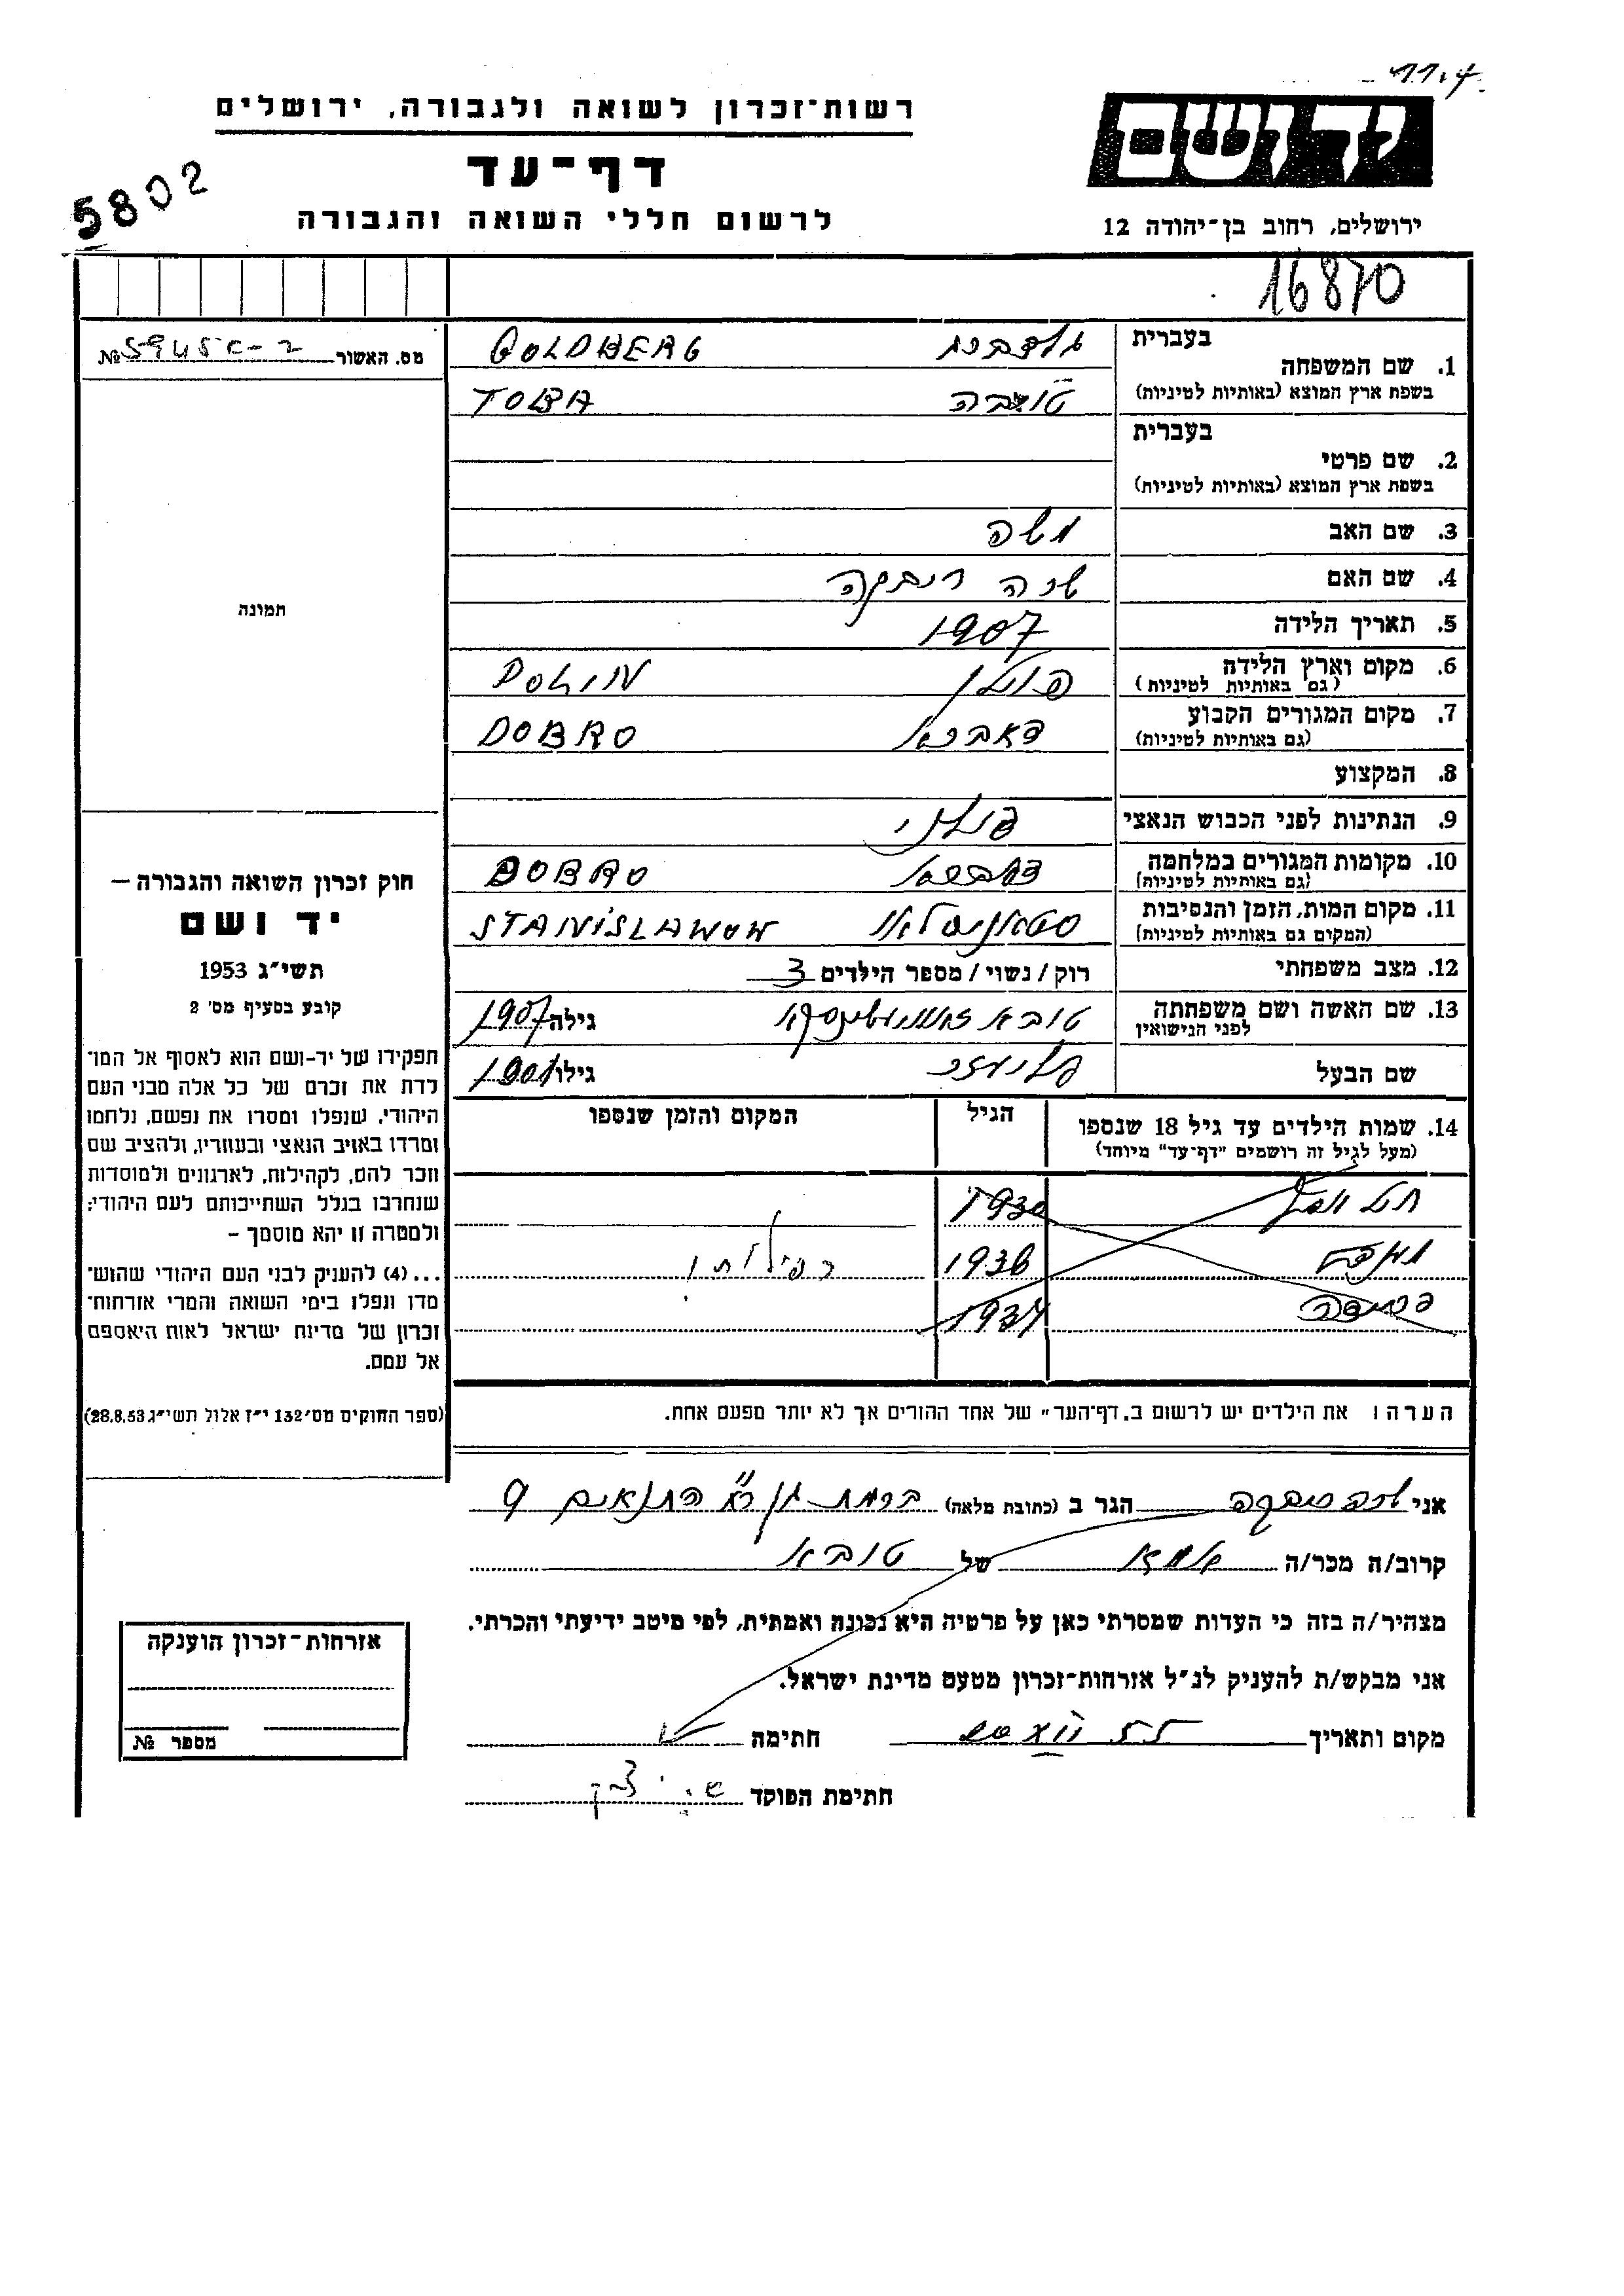 רשות־זכרון לשואה ולגבורה, ירושלים
דף־עד
לרשום חללי השואה והגבורה
5802
יד ושם
ירושלים, רחוב בן־יהודה 12
16870
מס. האשור №
בעברית
1. שם המשפחה
(בשפת ארץ המוצא (באותיות לטיניות
גולדברג GOLDBERG
טובה TOBA
בעברית
2. שם פרטי
(בשפת ארץ המוצא (באותיות לטיניות
3. שם האב משה
4. שם האם שרה רבקה
5. תאריך הלידה 1907
6. מקום וארץ הלידה פולין POLIN
(גם באותיות לטיניות)
7. מקום המגורים הקבוע דאברא DOBRO
(גם באותיות לטיניות)
8. המקצוע
9. הנתינות לפני הכבוש הנאצי פולני
10. מקומות המגורים במלחמה DOBRO
(גם באותיות לטיניות)
11. מקום המות, הזמן והנסיבות STANISLAWOW
(המקום גם באותיות לטיניות)
12. מצב משפחתי רוק / נשוי / מספר הילדים 3
13. שם האשה ושם משפחתה טובא גילה 1907
לפני הנישואין
שם הבעל גילו 1901
14. שמות הילדים עד גיל 18 שנספו הגיל המקום והזמן שנספו
(מעל לגיל זה רושמים "דף־עד" מיוחד)
1930
1936
1934
הערה: את הילדים יש לרשום ב„דף־העד" של אחד ההורים אך לא יותר מפעם אחת.
אני הגר ב (כתובת מלאה) ברמת גן רח' התנאים 9
קרוב/ה מכר/ה אמא של טובא
מצהיר/ה בזה כי העדות שמסרתי כאן על פרטיה היא נכונה ואמתית, לפי מיטב ידיעתי והכרתי.
אני מבקש/ת להעניק לנ״ל אזרחות־זכרון מטעם מדינת ישראל.
מקום ותאריך חתימה
חתימת הפוקד
תמונה
חוק זכרון השואה והגבורה —
יד ושם
תשי״ג 1953
קובע בסעיף מס׳ 2
תפקידו של יד־ושם הוא לאסוף אל המו־
לדת את זכרם של כל אלה מבני העם
היהודי, שנפלו ומסרו את נפשם, נלחמו
ומרדו באויב הנאצי ובעוזריו, ולהציב שם
וזכר להם, לקהילות, לארגונים ולמוסדות
שנחרבו בגלל השתייכותם לעם היהודי;
ולמטרה זו יהא מוסמך —
... (4) להעניק לבני העם היהודי שהוש־
מדו ונפלו בימי השואה והמרי אזרחות־
זכרון של מדינת ישראל לאות היאספם
אל עמם.
(ספר החוקים מס׳ 132 י״ז אלול תשי״ג 28.8.53)
אזרחות־זכרון הוענקה
מספר №